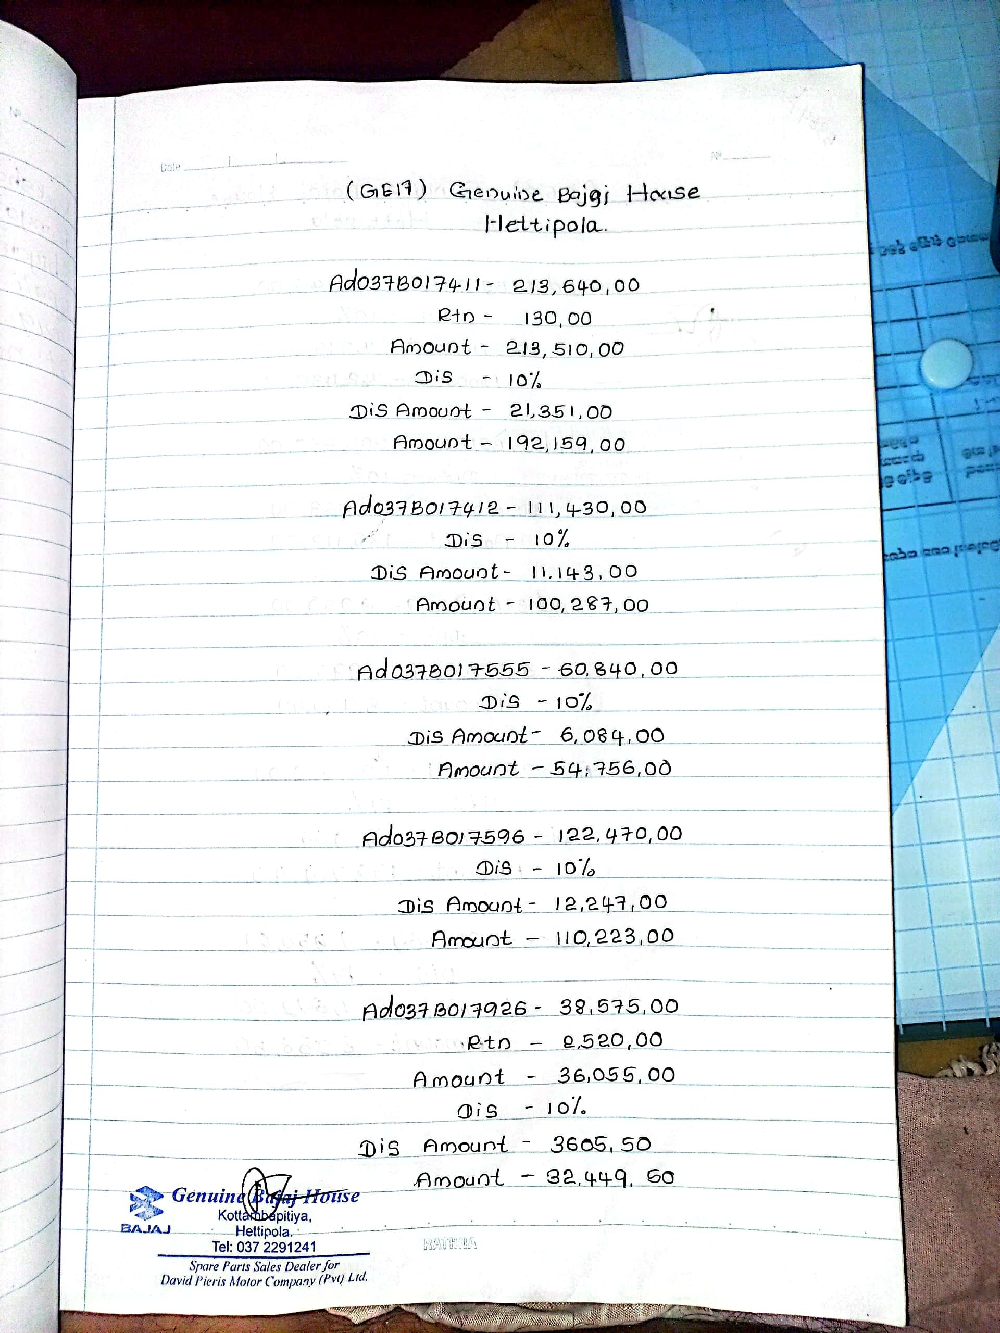 Date
Nº
(GE17) Genuine Bajaj House
Hettipola.
Ad037B017411- 213,640,00
Rtn - 130,00
Amount - 213,510,00
Dis - 10%
Dis Amount - 21,351,00
Amount - 192,159,00
Ad037B017412 - 111,430,00
Dis - 10%
Dis Amount- 11.143,00
Amount - 100,287,00
Ad037B017555 - 60,840,00
Dis - 10%
Dis Amount - 6,084,00
Amount - 54,756,00
Ad037B017596 - 122,470,00
Dis - 10%
Dis Amount - 12,247,00
Amount - 110,223,00
Ad037B017926 - 38,575,00
Rtn - 2,520,00
Amount - 36,055,00
Dis - 10%
Dis Amount - 3605,50
Amount - 32,449,50
Genuine Bajaj House
Kottambapitiya,
BAJAJ
Hettipola.
Tel: 037 2291241
Spare Parts Sales Dealer for
David Pieris Motor Company (Pvt) Ltd.